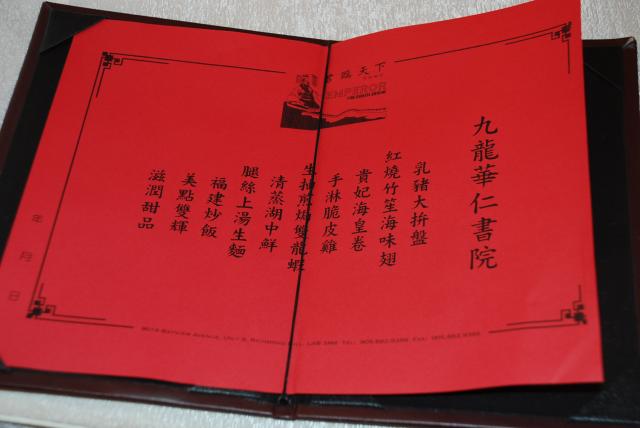 君臨天下
EMPEROR
九龍華仁書院
乳豬大拼盤
紅燒竹笙海味翅
貴妃海皇卷
手淋脆皮雞
生抽煎焗雙龍蝦
清蒸湖中鮮
腿絲上湯生麵
福建炒飯
美點雙輝
滋潤甜品
年 月 日